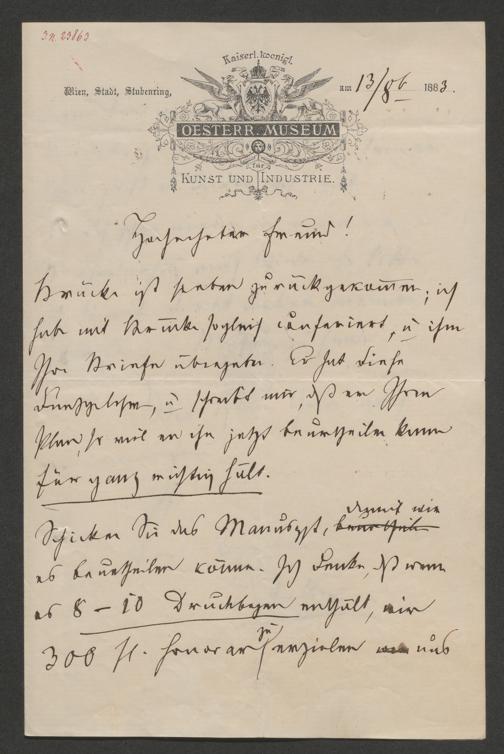 I.N. 23863
Kaiserl. koenigl.
Wien, Stadt, Stubenring,
am 13/8b 1883.
OESTERR. MUSEUM
für
KUNST UND INDUSTRIE.
Hochgeehrter Freund!
Brücke ist soeben zurückgekommen; ich
habe mit Brücke sogleich conferiert, u ihm
Ihre Briefe übergeben. Er hat diese
durchgelesen, u schreibt mir, daß er Ihren
Plan, so viel er ihn jetzt beurtheilen kann
für ganz richtig hält.
Schicken Sie das Manuscpt, damit wir
es beurtheilen können. Ich denke, daß wenn
es 8 – 10 Druckbogen enthält, wir
300 fl. Honorar zu erzielen uns